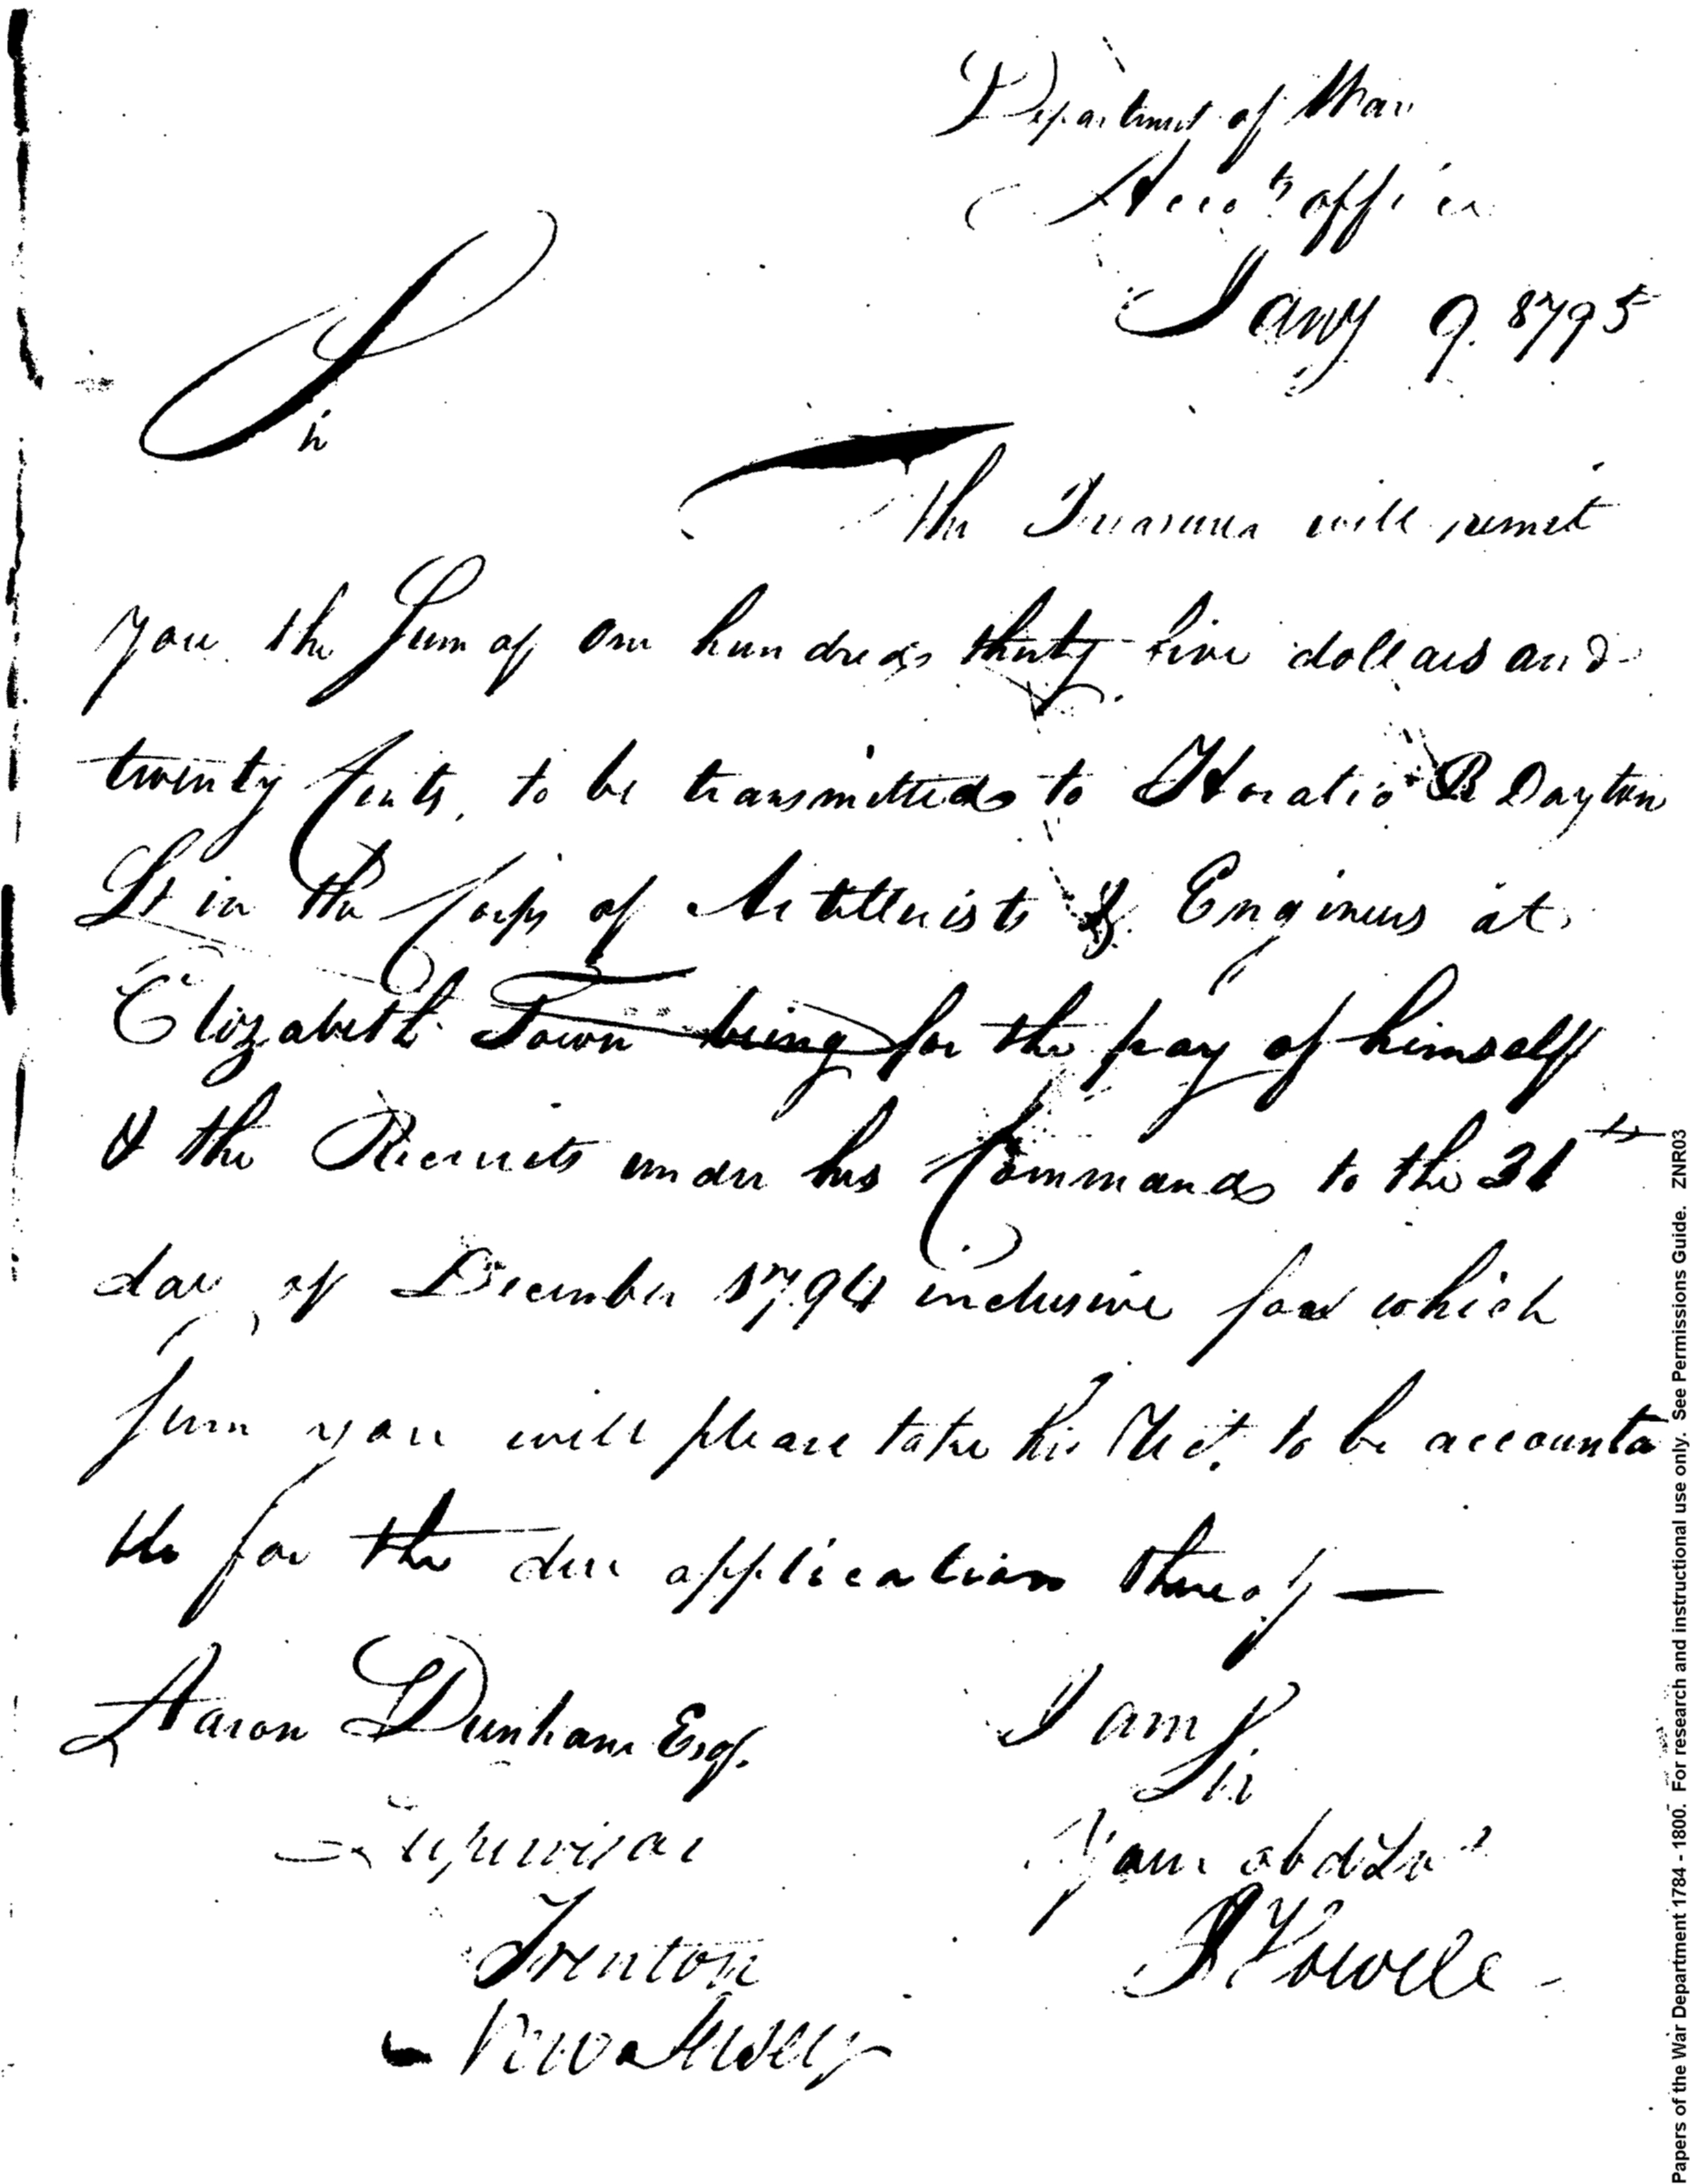 Department of War
Acco.ts office
Jany 9. 1795
Sir
The Treasurer will remit
you the Sum of one hundred thirty five dollars and
twenty Cents, to be transmitted to Horatio R Dayton
Lt in the Corps of Artillerists & Engineers at
Elizabeth Town being for the pay of himself
& the Recruits under his Command to the 31st
day of December 1794 inclusive for which
sum you will please take his Rect. to be accounta
ble for the due application thereof —
Aaron Dunham Esq.
Supervisor
Trenton
New Jersey
I am
Sir
Your obd Sert
J Howell
Papers of the War Department 1784 - 1800. For research and instructional use only. See Permissions Guide. ZNR03